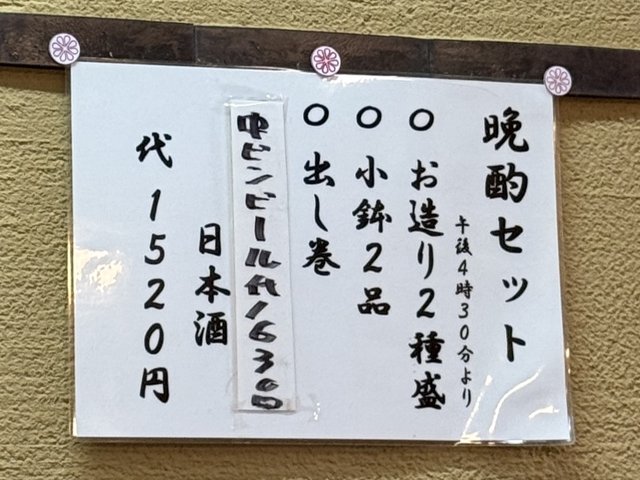 晩酌セット
午後4時30分より
○ お造り2種盛
○ 小鉢2品
○ 出し巻
中ビンビール代1630円
日本酒
代 1520円